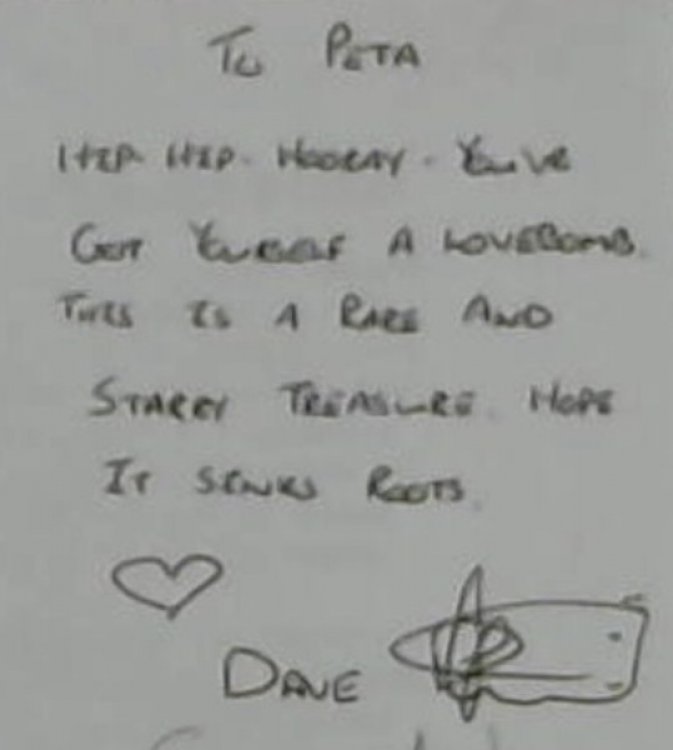 To PETA
HIP HIP HOORAY. YOU'VE
GOT YOURSELF A LOVEBOMB.
THIS IS A RARE AND
STARRY TREASURE. HOPE
IT SINKS ROOTS.
DAVE